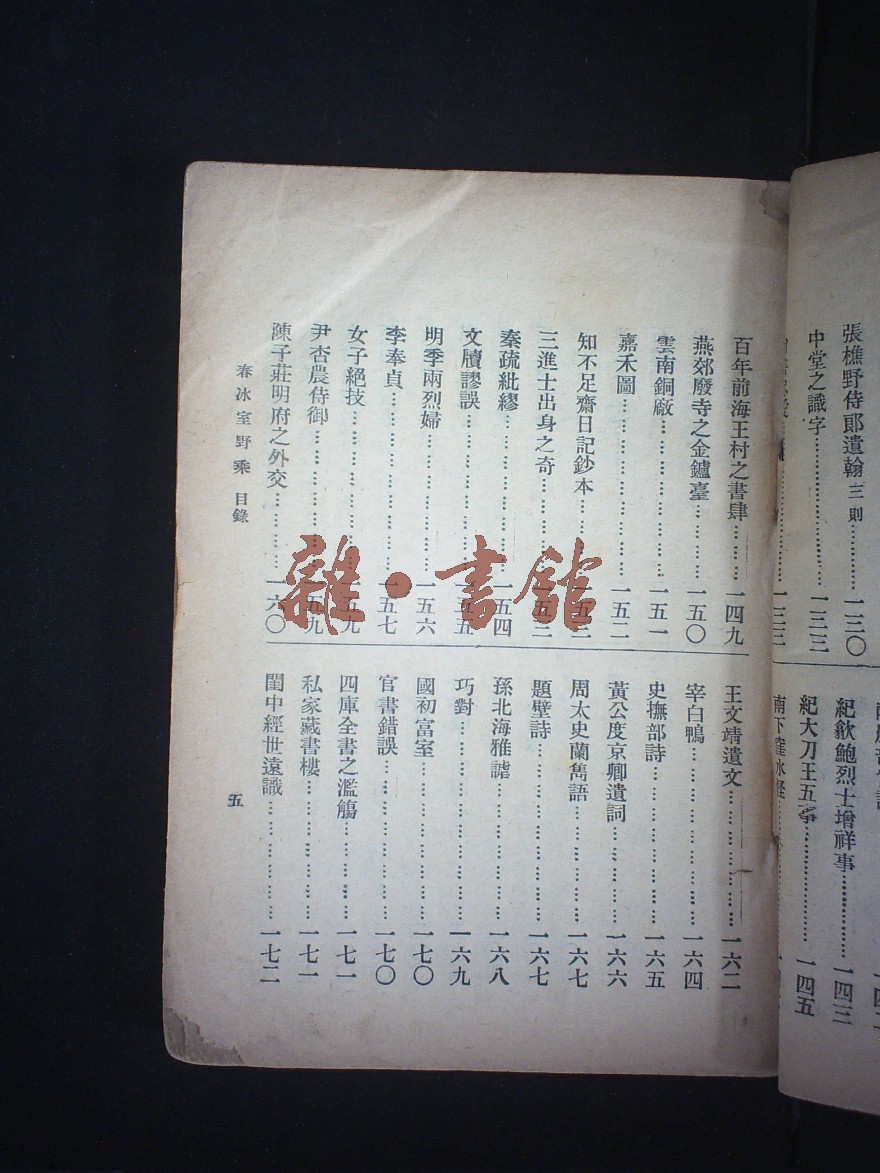 張樵野侍郞遺翰 三則 一三〇
中堂之識字 一三三
一三三
紀歙鮑烈士增祥事 一四三
紀大刀王五事 一四五
百年前海王村之書肆 一四九
燕郊廢寺之金鑪臺 一五〇
雲南銅廠 一五一
嘉禾圖 一五二
知不足齋日記鈔本
三進士出身之奇
奏疏紕繆 一五四
文牘謬誤
明季兩烈婦 一五六
李奉貞 一五七
女子絕技 一五九
尹杏農侍御 一五九
陳子莊明府之外交 一六〇
王文靖遺文 一六二
宰白鴨 一六四
史撫部詩 一六五
黃公度京卿遺詞 一六六
周太史蘭雋語 一六七
題壁詩 一六七
孫北海雅謔 一六八
巧對 一六九
國初富室 一七〇
官書錯誤 一七〇
四庫全書之濫觴 一七一
私家藏書樓 一七一
閨中經世遠識 一七二
春冰室野乘 目錄
五
雜·書館